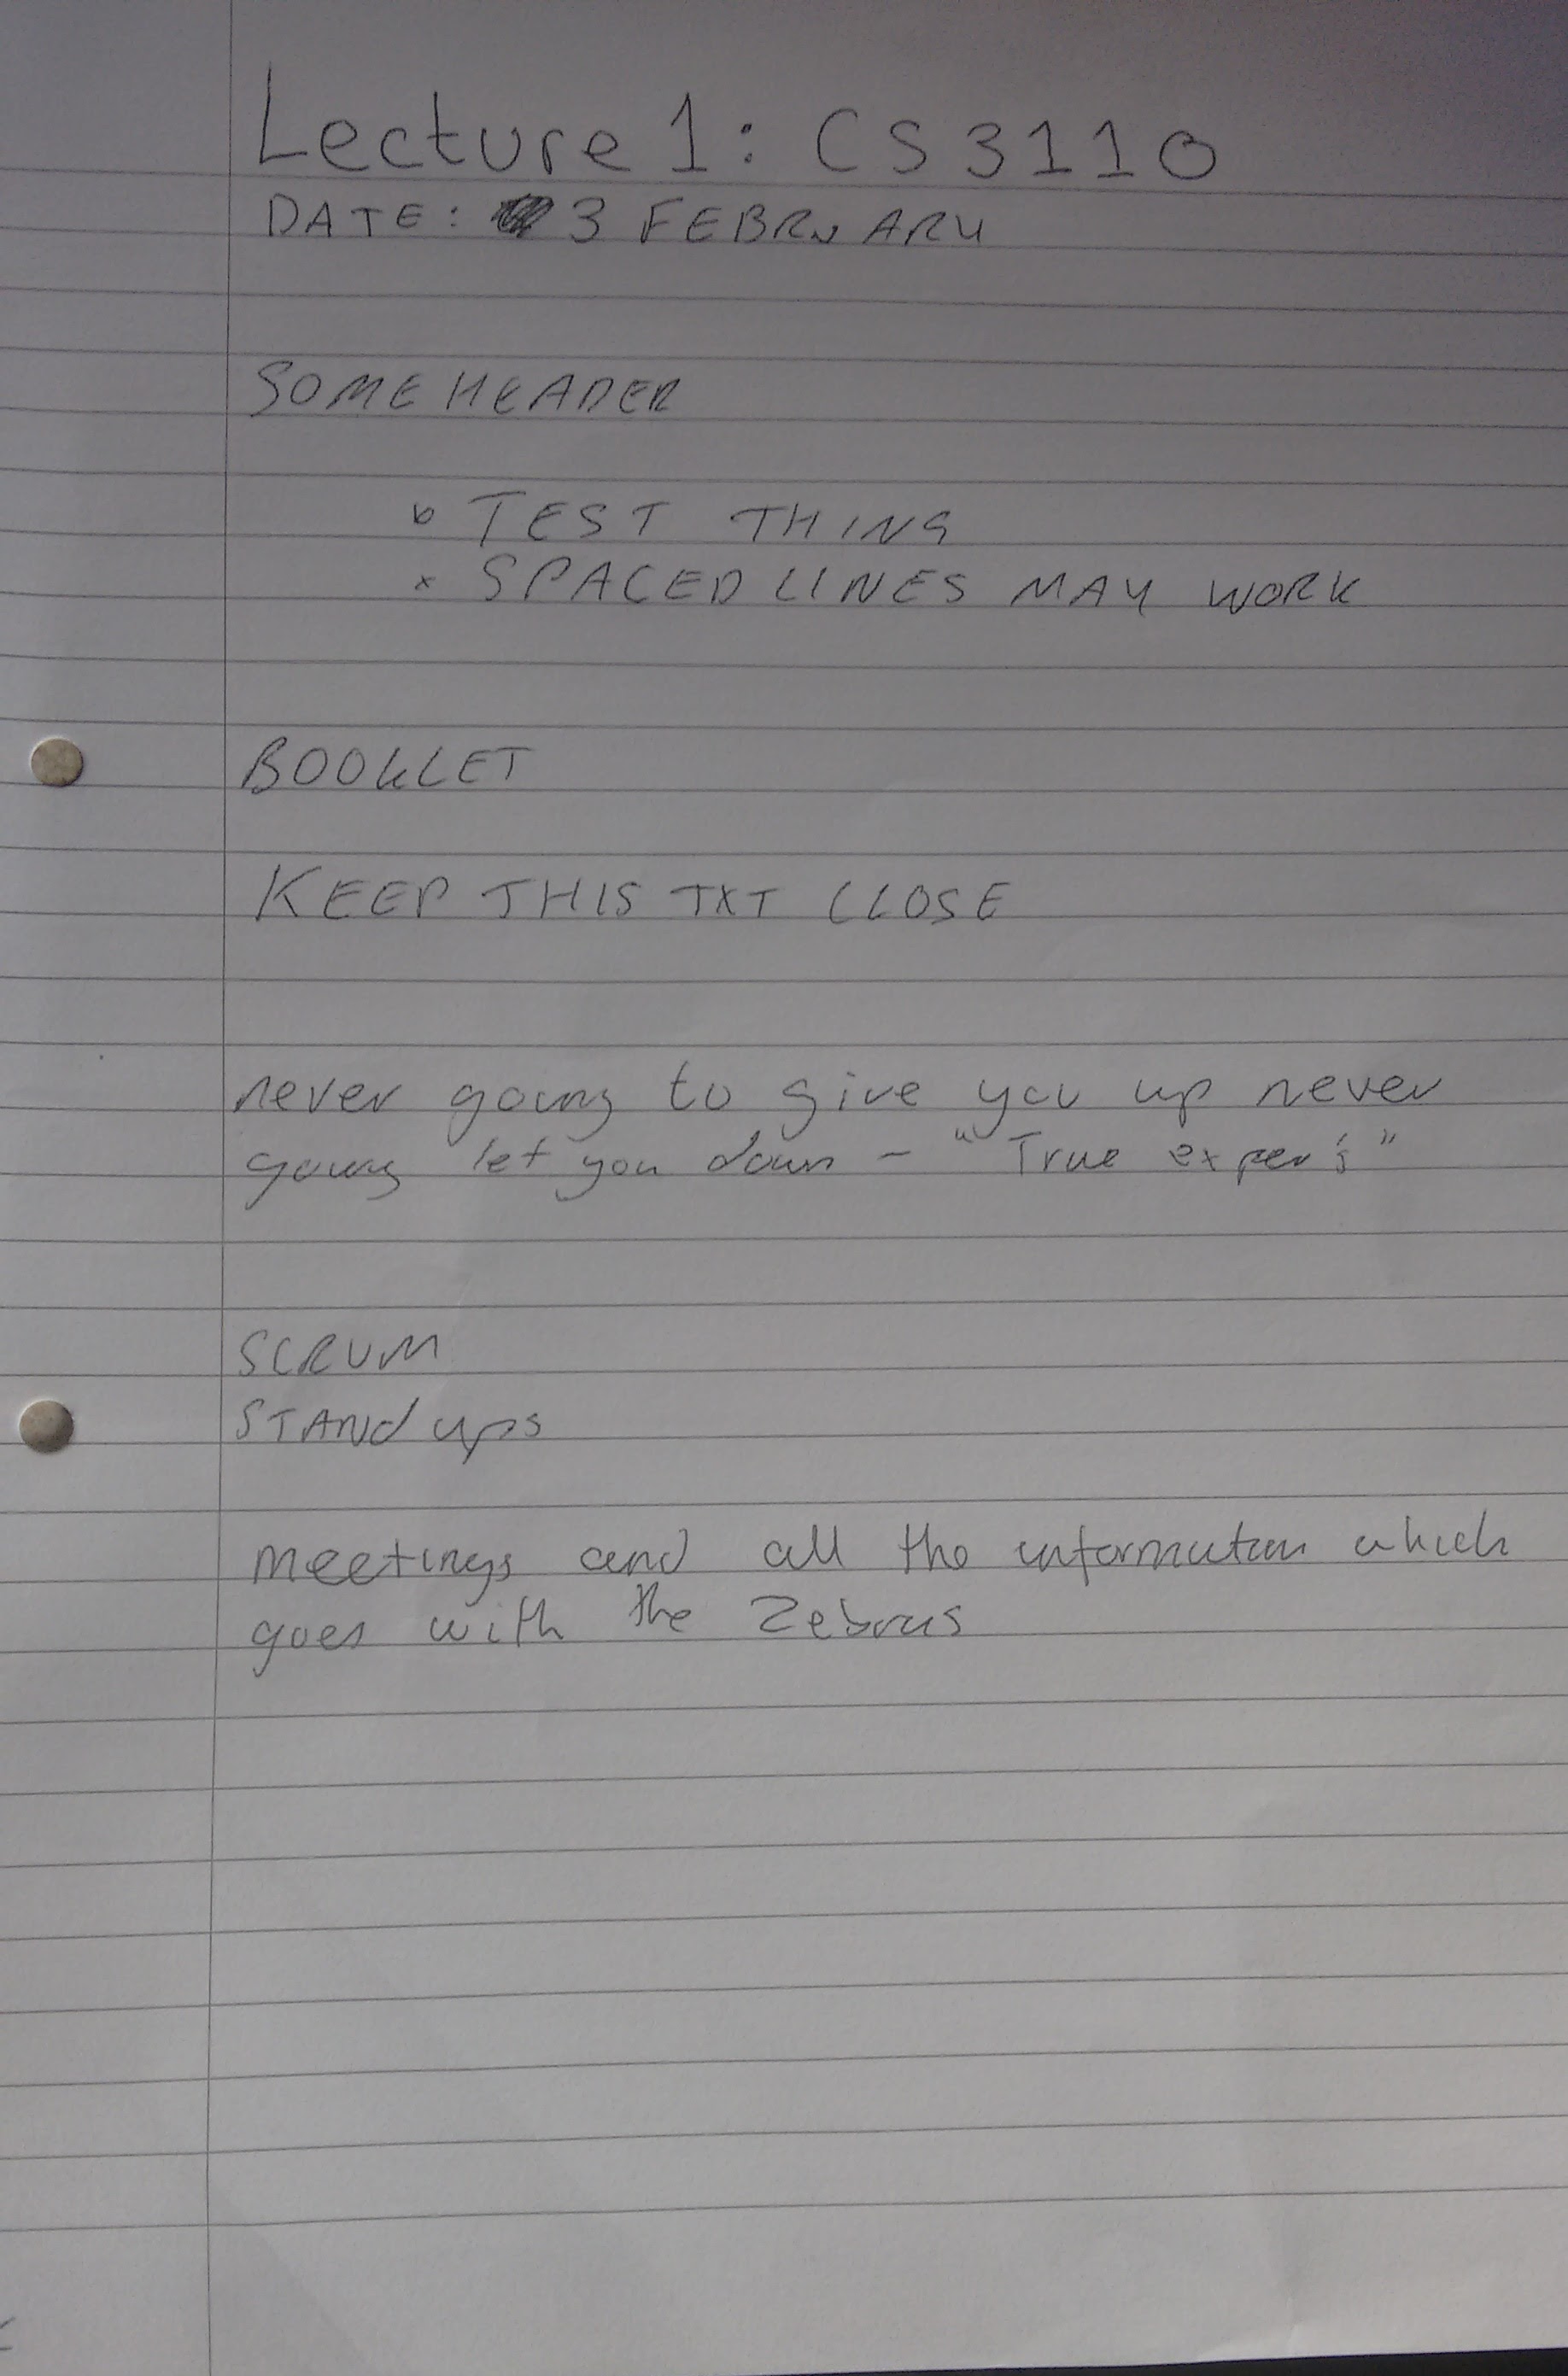 Lecture 1: CS3110
DATE: 3 FEBRUARY
SOME HEADER
TEST THING
SPACED LINES MAY WORK
BOOKLET
KEEP THIS TXT CLOSE
never going to give you up never
going let you down - "True
SCRUM
STANd ups
meetings and all the information which
goes with the Zebras